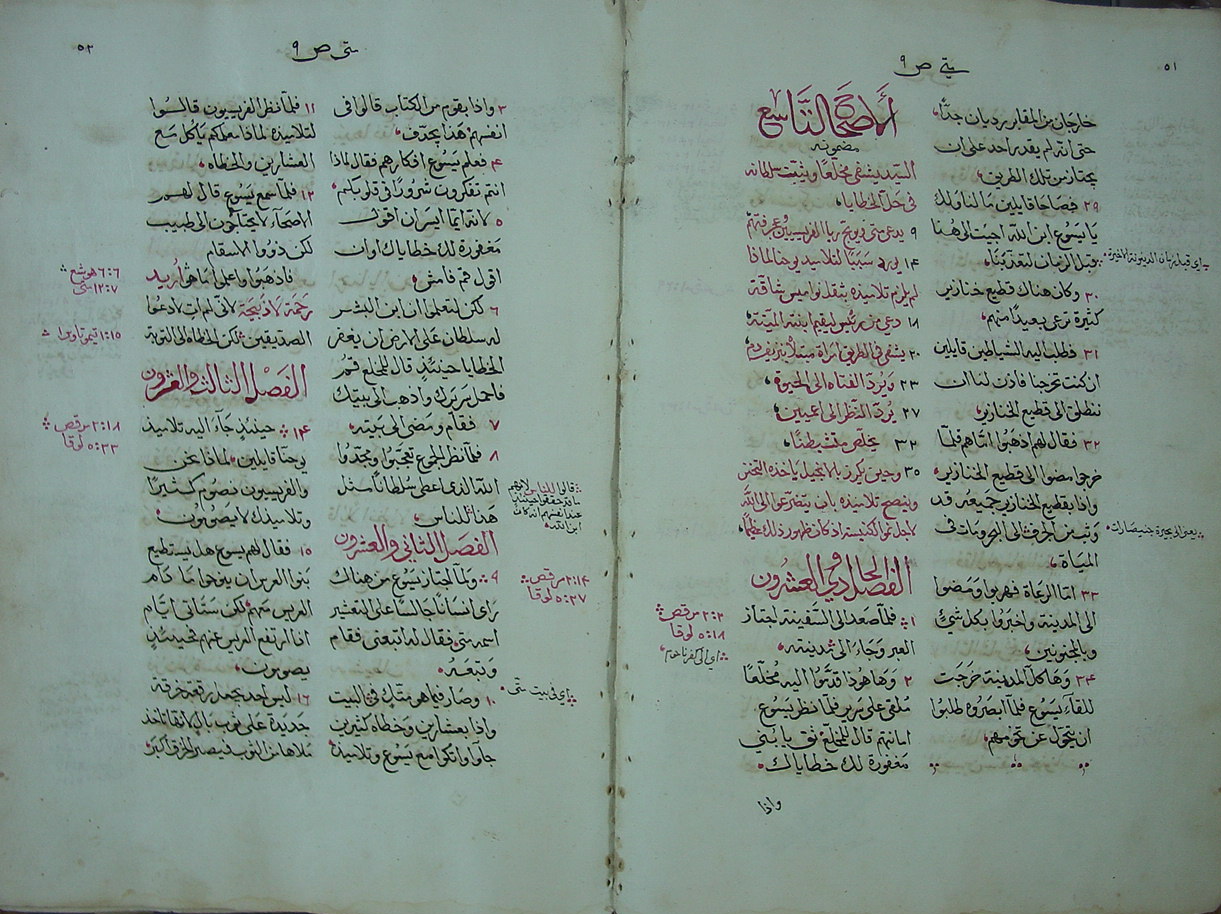 ٥١
متى ص ٩
خارجان من المقابر رديان جدًّا
حتى انه لم يقدر احد على ان
يجتاز من تلك الطريق
٢٩ فصاحا قايلين ما لنا ولك
يا يسوع ابن الله أجيت الى هنا
قبل الزمان لتعذبنا
٣٠ وكان هناك قطيع خنازير
كثيرة ترعى بعيدًا منهم
٣١ فطلب اليه الشياطين قايلين
ان كنت تخرجنا فأذن لنا ان
ننطلق الى قطيع الخنازير
٣٢ فقال لهم اذهبوا اما هم فلما
خرجوا مضوا الى قطيع الخنازير
واذا بقطيع الخنازير جميعه قد
وثب من الجرف الى البحر ومات في
المياه
٣٣ اما الرعاة فهربوا ومضوا
الى المدينة واخبروا بكل شيء
وبالمجنونين
٣٤ وها كل المدينة خرجت
للقاء يسوع فلما ابصروه طلبوا
ان يتحول عن تخومهم
اي قبل زمان الدينونة الاخيرة
يعني الى بحيرة جنيصارات
الأصحاح التاسع
مضمونه
السيد يشفي مخلعًا ويثبت سلطانه
في حل الخطايا
٩ يدعى متى ويوبخ ريا الفريسيين وعجرفتهم
١٤ يورد سببًا لتلاميذ يوحنا لماذا
لم يلزم تلاميذه بثقل نواميس شاقة
١٨ دعي من رئيس ليقيم ابنته الميتة
٢٠ يشفي في الطريق امرأة مبتلاة بنزيف دم
٢٣ ويرد الفتاه الى الحيوة
٢٧ يرد النظر الى اعميين
٣٢ يخلص متشيطنًا
٣٥ وحين يكرز بالانجيل ياخذه التحنن
وينصح تلاميذه بان يتضرعوا الى الله
لاجل نمو الكنيسة اذ كان ظهور ذلك عظيمًا
الفصل الحادي والعشرون
١ فلما صعد الى السفينة اجتاز
العبر وجاء الى مدينته
٢ وها هوذا قدموا اليه مخلعًا
ملقى على سرير فلما نظر يسوع
امانتهم قال للمخلع ثق يا بني
مغفورة لك خطاياك
٢:٢ مرقص
٥:١٨ لوقا
اي الى كفرناحوم
واذا
٥٢
متى ص ٩
٣ واذا بقوم من الكتاب قالوا في
انفسهم هذا يجدف
٤ فعلم يسوع افكارهم فقال لماذا
انتم تفكرون شرورًا في قلوبكم
٥ لانه ايما ايسر ان اقول
مغفورة لك خطاياك او ان
اقول قم فامش
٦ لكن لتعلموا ان ابن البشر
له سلطان على الارض ان يغفر
الخطايا حينئذٍ قال للمخلع قم
فاحمل سريرك واذهب الى بيتك
٧ فقام ومضى الى بيته
٨ فلما نظر الجموع تعجبوا ومجدوا
الله الذي اعطى سلطانًا مثل
هذا للناس
الفصل الثاني والعشرون
٩ ولما اجتاز يسوع من هناك
راى انسانًا جالسًا على التعشير
اسمه متى فقال له اتبعني فقام
وتبعه
١٠ وصار فيما هو متكٍ في البيت
واذا بعشارين وخطاه كثيرين
جاوا واتكوا مع يسوع وتلاميذه
قالوا للناس لانهم
ابن الله
٢:١٤ مرقص
٥:٢٧ لوقا
اي في بيت متى
١١ فلما نظر الفريسيون قالوا
لتلاميذه لماذا معلمكم ياكل مع
العشارين والخطاه
١٢ فلما سمع يسوع قال لهم
الاصحآء لا يحتاجون الى طبيب
لكن ذووا الاسقام
فاذهبوا واعلموا ما هو أريد
رحمة لا ذبيحة لاني لم ات لادعوا
الصديقين لكن الخطاه الى التوبة
الفصل الثالث والعشرون
١٤ حينئذٍ جآء اليه تلاميذ
يوحنا قايلين لماذا نحن
والفريسيون نصوم كثيرًا
وتلاميذك لا يصومون
١٥ فقال لهم يسوع هل يستطيع
بنوا العريس ان ينوحوا ما دام
العريس معهم لكن ستاتي ايام
اذا ارتفع العريس عنهم فحينئذٍ
يصومون
١٦ ليس احد يجعل رقعة خرقة
جديدة على ثوب بالٍ لانها تاخذ
ملاها من الثوب فيصير الخرق اكبر
٦:٦ هوشع
١٢:٧ متى
١:١٥ تيموتاوس ١
٢:١٨ مرقص
٥:٣٣ لوقا